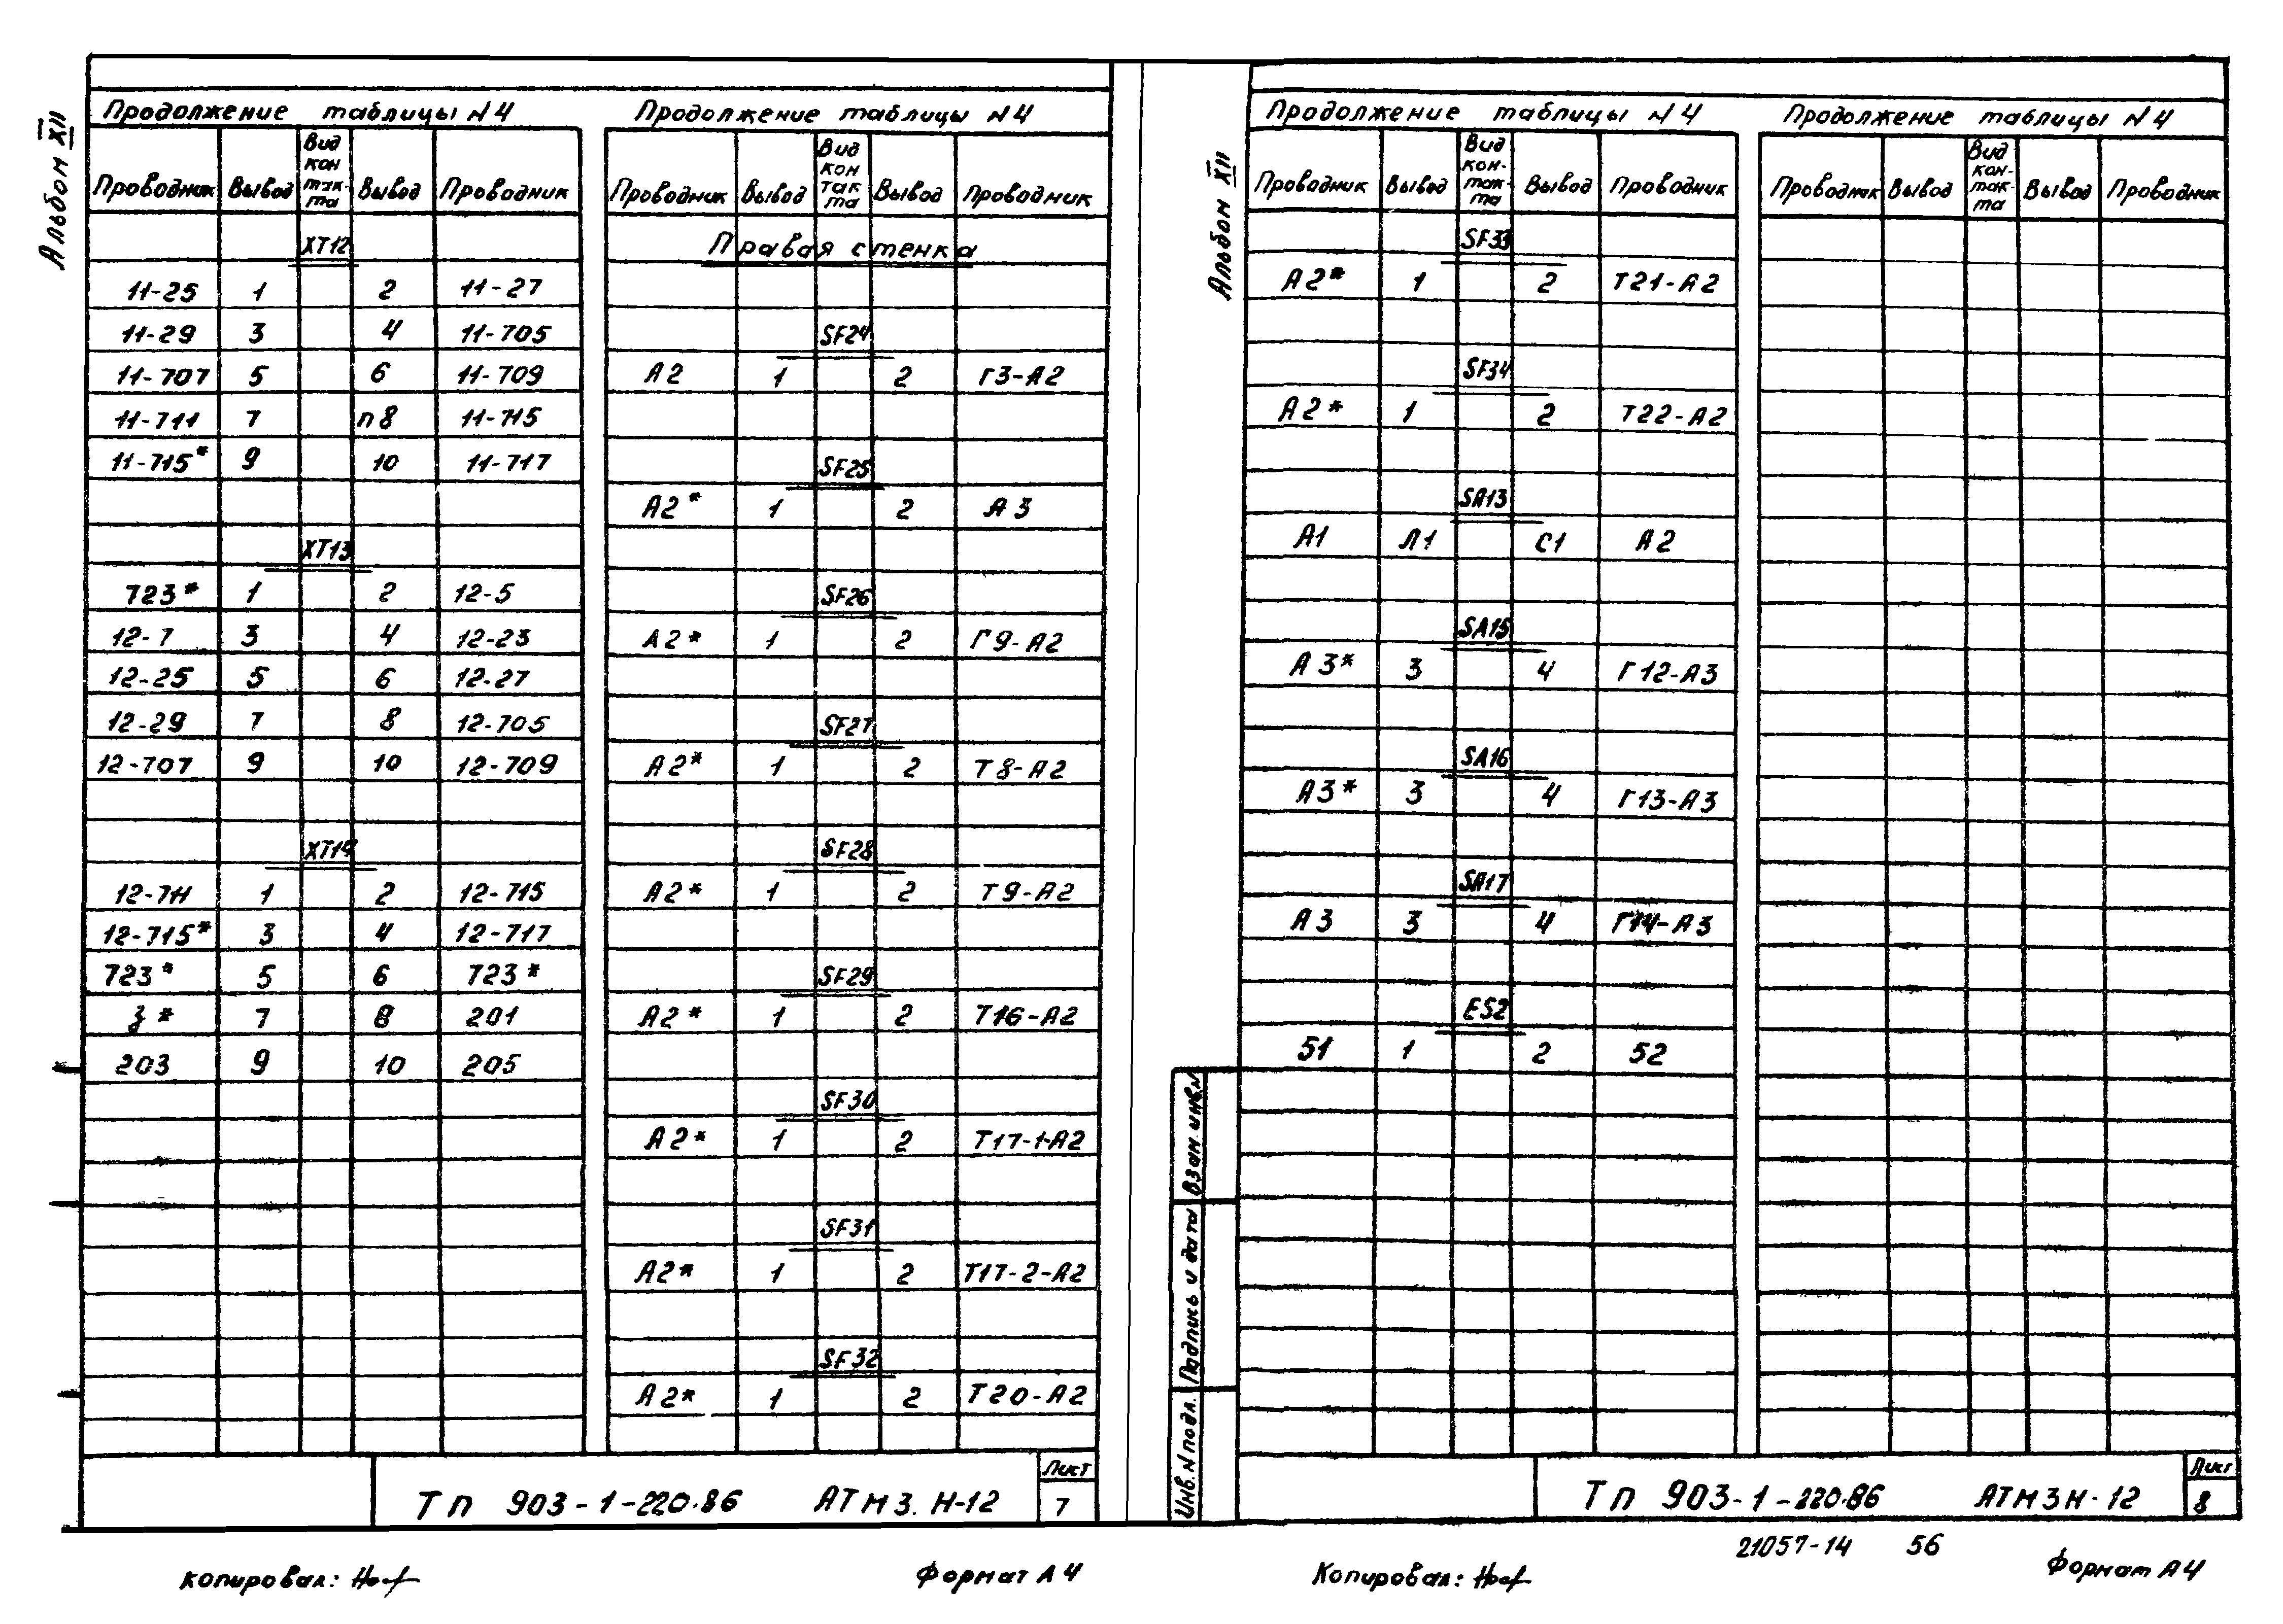 Альбом XII
Продолжение таблицы N4
Проводник Вывод Вид кон так- та Вывод Проводник
XT12
11-25 1 2 11-27
11-29 3 4 11-705
11-707 5 6 11-709
11-711 7 п8 11-715
11-715* 9 10 11-717
XT13
723* 1 2 12-5
12-7 3 4 12-23
12-25 5 6 12-27
12-29 7 8 12-705
12-707 9 10 12-709
XT14
12-711 1 2 12-715
12-715* 3 4 12-717
723* 5 6 723*
7 8 201
203 9 10 205
Продолжение таблицы N4
Проводник Вывод Вид кон так та Вывод Проводник
Правая стенка
SF24
А2 1 2 Г3-А2
SF25
А2* 1 2 А3
SF26
А2* 1 2 Г9-А2
SF27
А2* 1 2 Т8-А2
SF28
А2* 1 2 Т9-А2
SF29
А2* 1 2 Т16-А2
SF30
А2* 1 2 Т17-1-А2
SF31
А2* 1 2 Т17-2-А2
SF32
А2* 1 2 Т20-А2
ТП 903-1-220.86 АТМ3.Н-12
Лист
7
Копировал:
Формат А4
Альбом XII
Продолжение таблицы N4
Проводник Вывод Вид кон- так- та Вывод Проводник
SF33
А2* 1 2 Т21-А2
SF34
А2* 1 2 Т22-А2
SA13
А1 Л1 С1 А2
SA15
А3* 3 4 Г12-А3
SA16
А3* 3 4 Г13-А3
SA17
А3 3 4 Г14-А3
ES2
51 1 2 52
Продолжение таблицы N4
Проводник Вывод Вид кон- так- та Вывод Проводник
Взам. инв. N
Подпись и дата
Инв. N подл.
ТП 903-1-220.86 АТМ3Н-12
Лист
8
21057-14 56
Копировал:
Формат А4